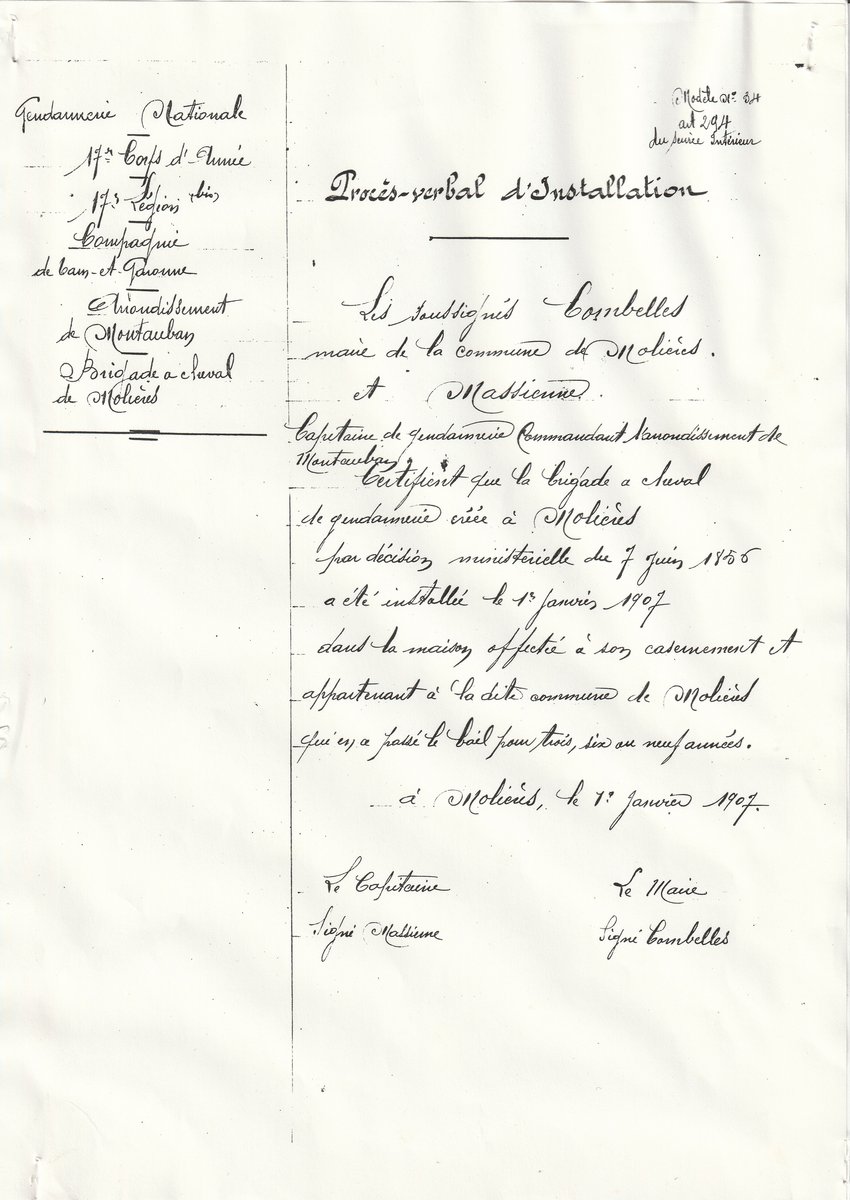 Gendarmerie Nationale
17e Corps d'Armée
17e Légion (bis)
Compagnie
de Tarn-et-Garonne
Arrondissement
de Montauban
Brigade a cheval
de Molières
Modèle No 34
art 294
du service Intérieur
Procès-verbal d'Installation
Les soussignés Combelles
maire de la commune de Molières.
et Massienne.
Capitaine de gendarmerie Commandant l'arrondissement de
Montauban,
Certifient que la brigade a cheval
de gendarmerie créée à Molières
par décision ministérielle du 7 Juin 1856
a été installée le 1er Janvier 1907
dans la maison affectée à son casernement et
appartenant à la dite commune de Molières
qui en a passé le bail pour trois, six ou neuf années.
à Molières, le 1er Janvier 1907.
Le Capitaine
Signé Massienne
Le Maire
Signé Combelles